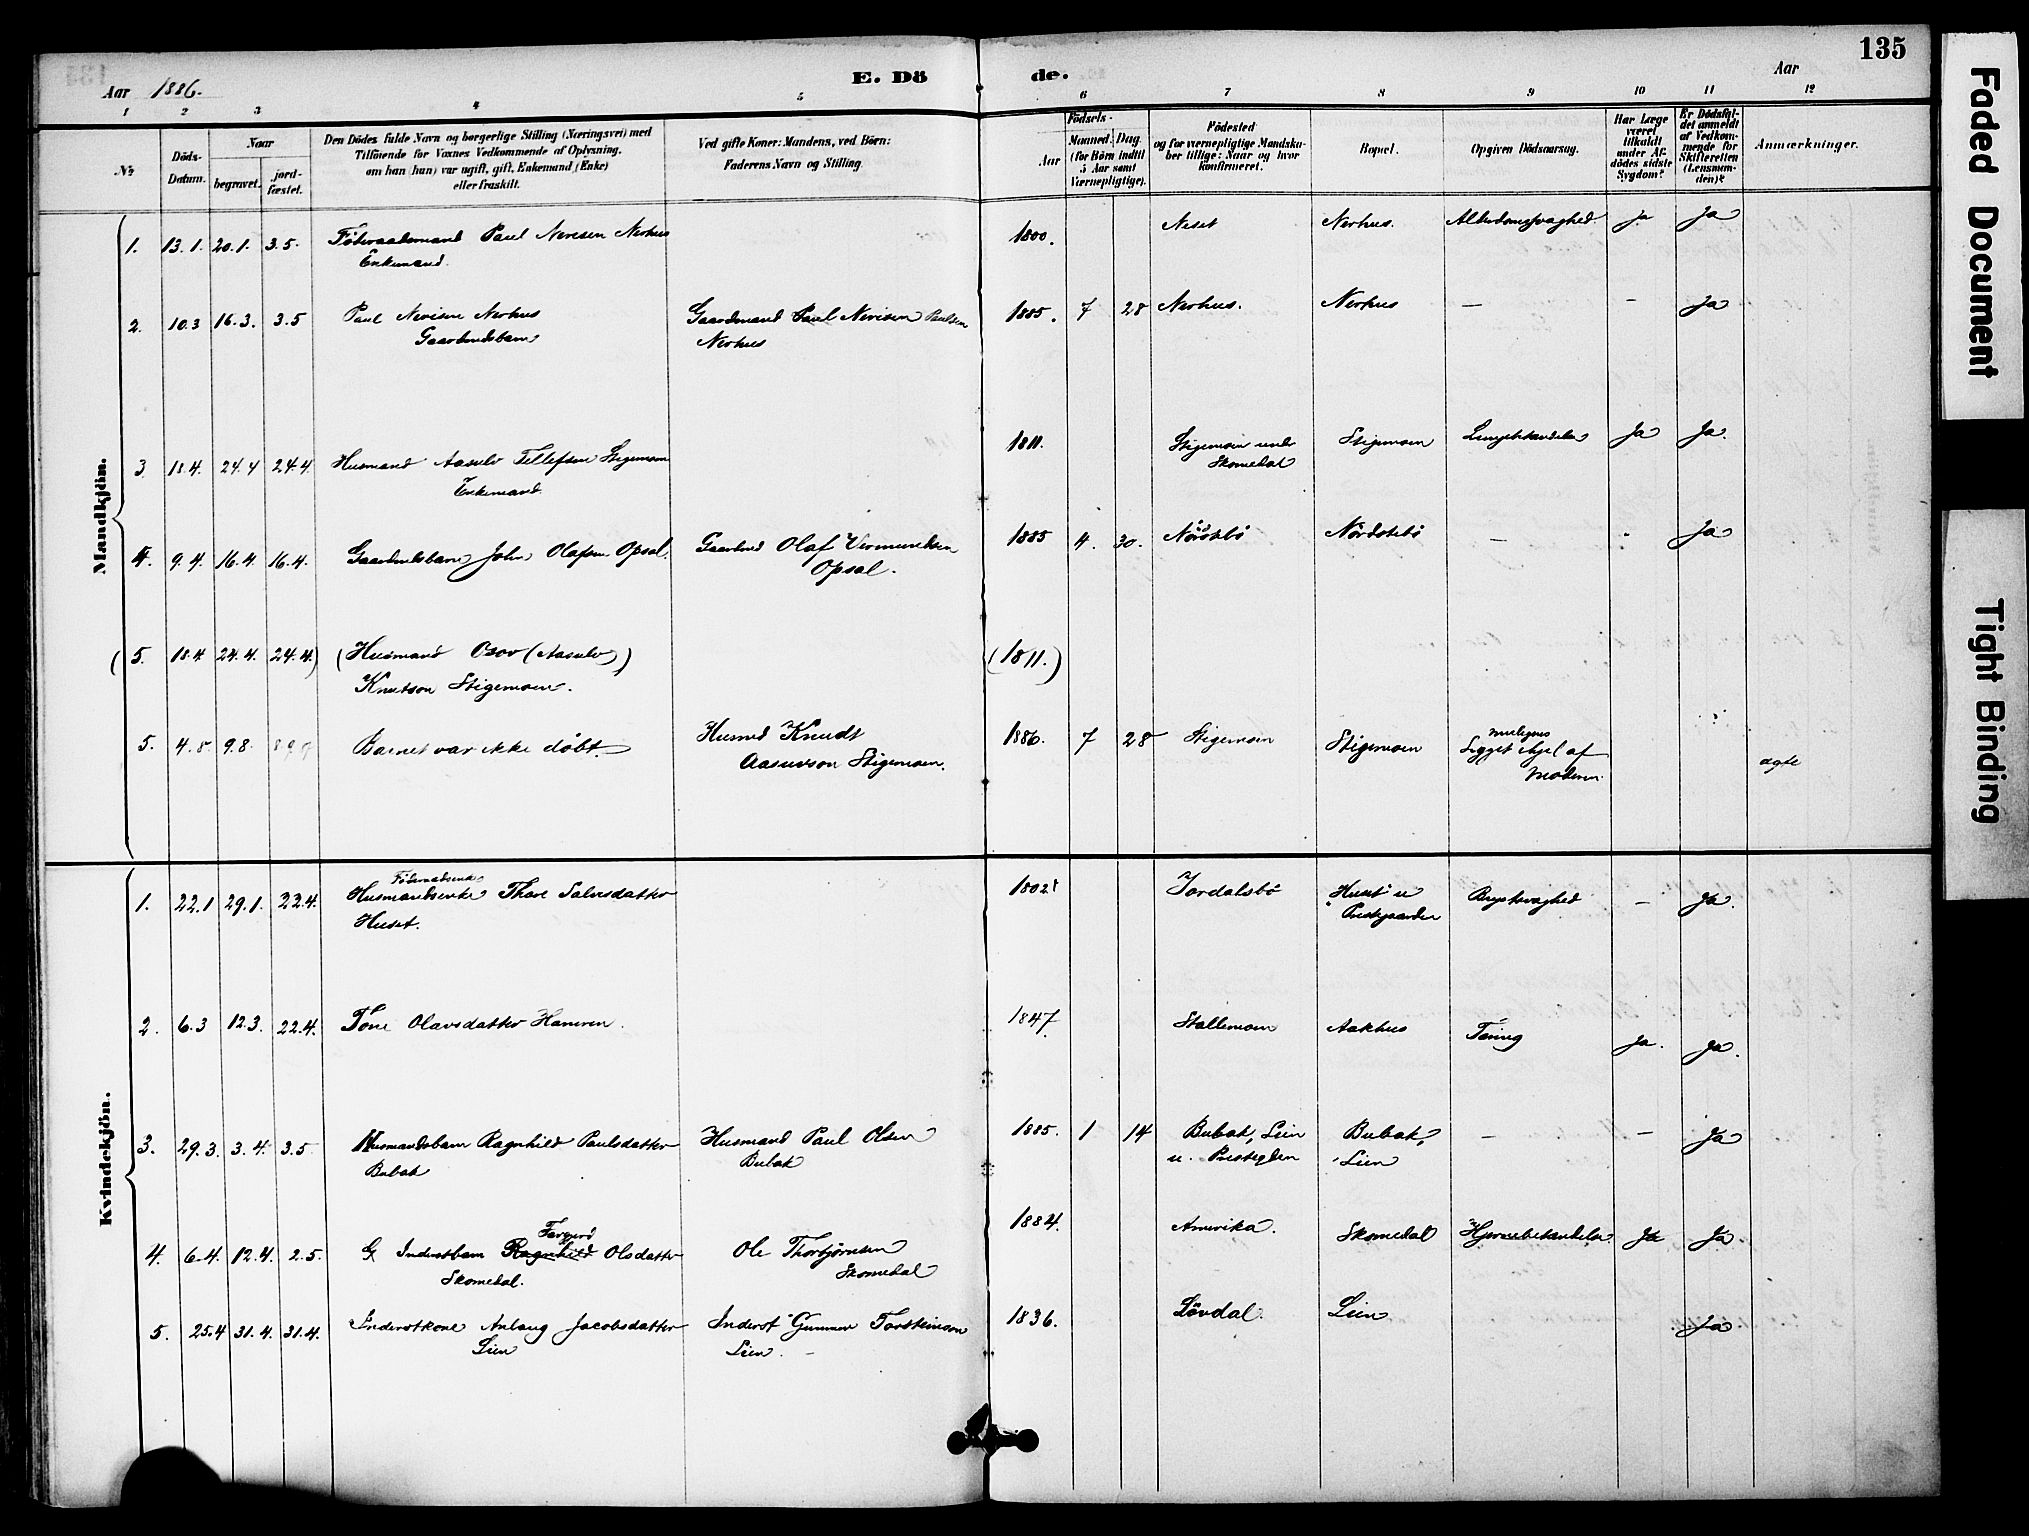 135
Aar 1886.
E. Dö de.
Aar
1 2 3 4 5 6 7 8 9 10 11 12
No
Döds-Datum.
Naar
begravet.
jord-fæstet.
Den Dödes fulde Navn og borgerlige Stilling (Næringsvei) med
Tilföiende for Voxnes Vedkommende af Oplysning,
om han (hun) var ugift, gift, Enkemand, (Enke)
eller fraskilt.
Ved gifte Koner: Mandens, ved Börn:
Faderens Navn og Stilling.
Födsels-
Aar
Maaned. Dag.
(for Börn indtil
5 Aar samt
Værnepligtige).
Födested
og for værnepligtige Mandska-
ber tillige: Naar og hvor
konfirmeret.
Bopæl.
Opgiven Dödsaarsag.
Har Læge
været
tilkaldt
under Af-
dödes sidste
Sygdom?
Er Dödsfal-
det anmeldt
af Vedkom-
mende for
Skifteretten
(Lensman-
den)?
Anmærkninger.
Mandkjön.
1. 13.1. 20.1. 3.5. Föderaadsmand Paul Neresen Nerhus 1800. Neset Nerhus. Alderdomssvaghed ja Ja
Enkemand.
2. 10.3 16.3. 3.5 Paul Nerisen Nerhus Gaardmand Paul Nerisen Paulsen 1885. 7 28 Nerhus. Nerhus — – Ja
Gaardmdsbarn Nerhus
3 18.4. 24.4 24.4. Husmand Aasulv Tellefsen Stigemoen 1811. Stigemoen under Stigemoen Lungebetændelse Ja Ja.
Enkemand. Skomedal
4. 9.4. 16.4. 16.4. Gaardmdsbarn John Olafsen Opsal. Gaardmd Olaf Vermundsen 1885 4. 30. Nordstebö — Ja
Opsal.
(5. 18.4 24.4. 24.4.) (Husmand Osov (Aasulv)) (1811.)
Knutson Stigemoen.
5. 4.8 9.8. Barnet var ikke döbt. Husmd Knudt 1886. 7 28 Stigemoen Stigemoen muligens
Aasuvson Stigemoen. Ligget ihjel af
Moderen. ægte
Kvindekjön.
1. 22.1 29.1. 22.4. Husmandsenke Thore Salvesdatter 1802 Jordalsbö Huset u Brystsvaghed – Ja.
Huset. Prestgaarden
2. 6.3 12.3. 22.4. Tone Olavsdatter Hameren. 1847 Stallemoen Aakhus Tæring Ja. Ja.
3. 29.3. 3.4. 3.5 Husmandsbarn Ragnhild Paulsdatter Husmand Paul Olsen 1885. 1 14 Bubak, Lien Bubak, – – Ja
Bubak Bubak u. Prestegden Lien
4. 6.4. 12.4. 2.5. Inderstbarn Ragnhild Olsdatter Ole Thorbjörnsen 1884. Amerika. Skomedal Hjernebetændelse Ja Ja
Skomedal. Skomedal
5. 25.4 31.4. 31.4. Inderstkone Anlaug Jacobsdatter Inderst Gunner Torsteinson 1836. Lövdal. Lien Ja
Lien Lien.
Faded Document
Tight Binding